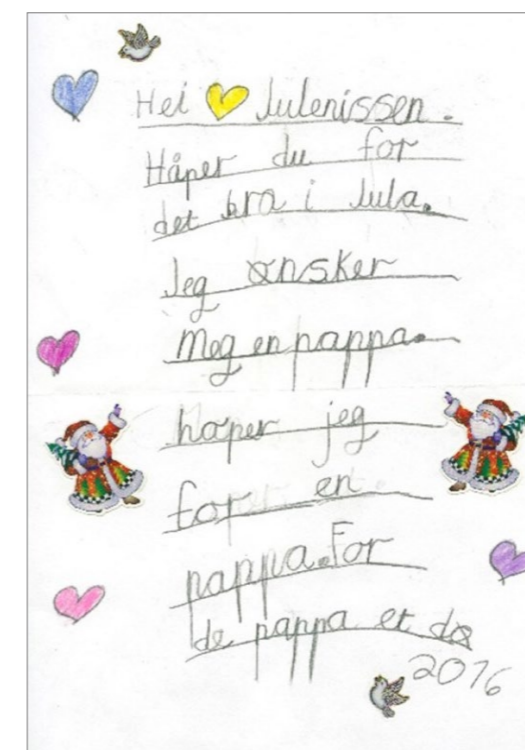 Hei Julenissen.
Håper du for
det bra i Jula.
Jeg ønsker
Meg en pappa.
håper jeg
for en
pappa. For
de pappa er dø
2016